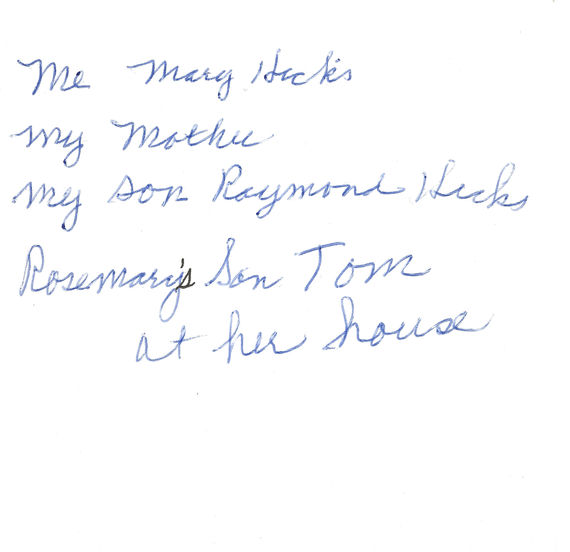 Me Mary Hicks
My Mother
My son Raymond Hicks
Rosemary's Son Tom
at her house